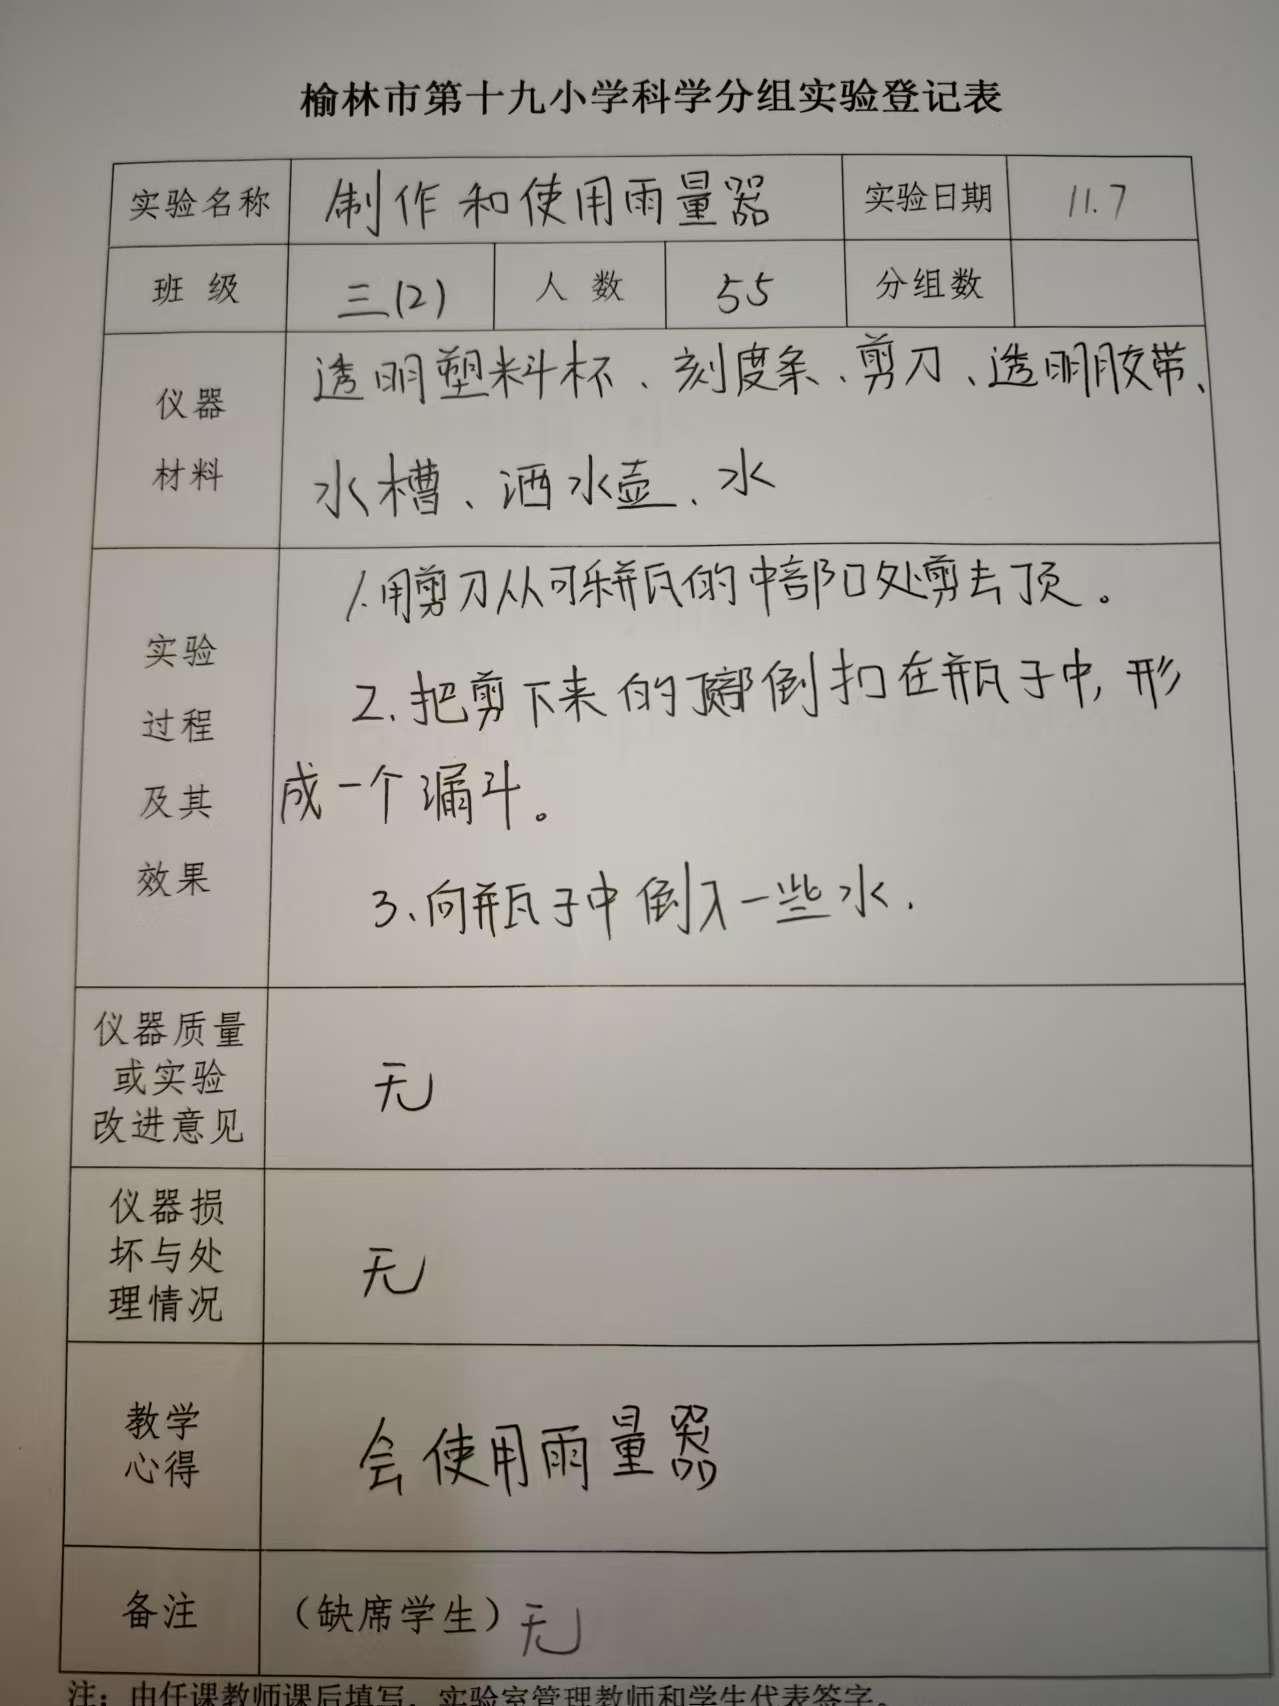 榆林市第十九小学科学分组实验登记表
实验名称 制作和使用雨量器 实验日期 11.7
班 级 三(2) 人 数 55 分组数
仪器
材料
透明塑料杯、刻度条、剪刀、透明胶带、
水槽、洒水壶、水
实验
过程
及其
效果
1.用剪刀从可乐瓶的中部口处剪去顶。
2.把剪下来的顶部倒扣在瓶子中,形
成一个漏斗。
3、向瓶子中倒入一些水.
仪器质量
或实验
改进意见
无
仪器损
坏与处
理情况
无
教学
心得
会使用雨量器
备注 （缺席学生）无
注：由任课教师课后填写，实验室管理教师和学生代表签字。